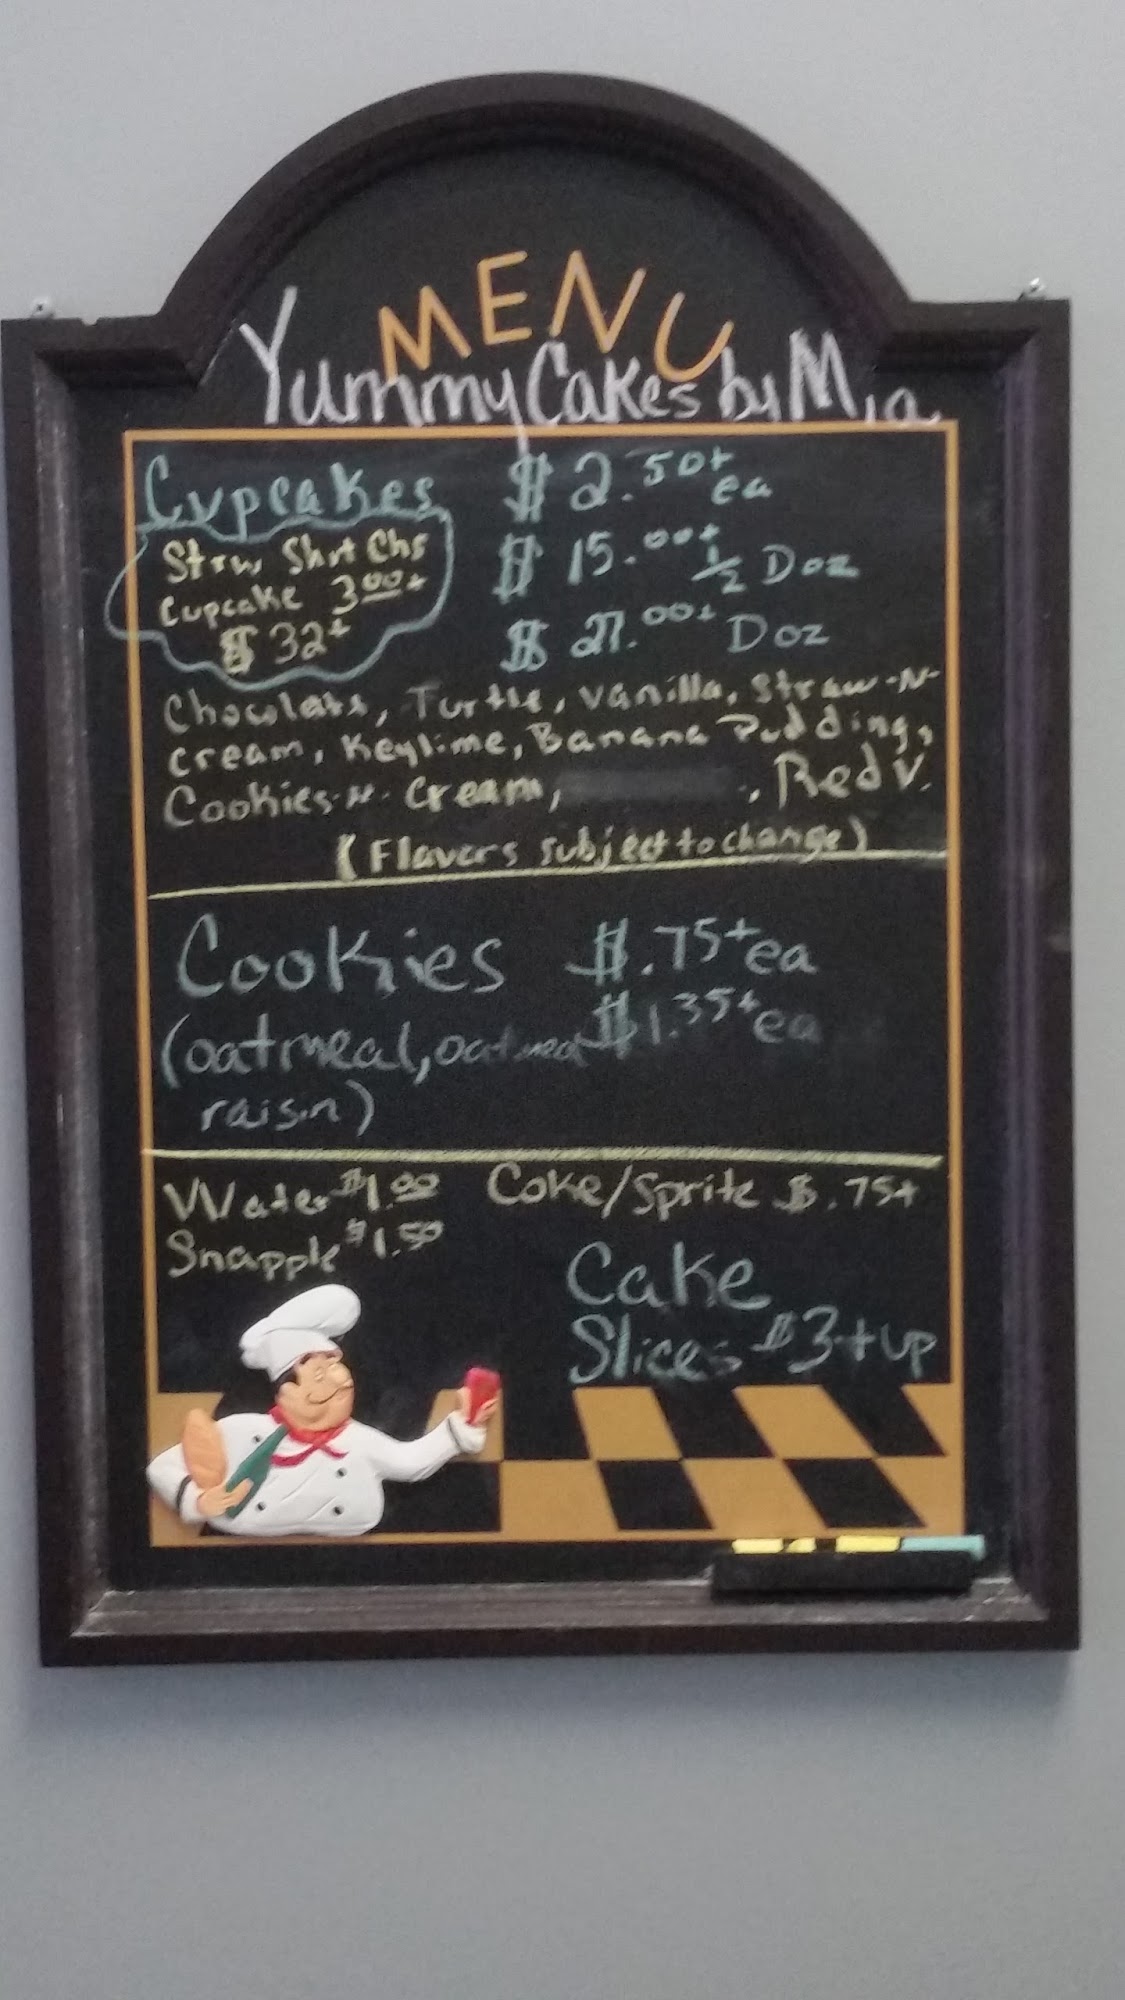 MENU
Yummy Cakes by Mia
Cupcakes $2.50+ ea
Straw Shrt Chs
Cupcake 3.00+
$32+
$15.00+ ½ Doz
$27.00+ Doz
Chocolate, Turtle, Vanilla, Straw-N-
Cream, Keylime, Banana Pudding,
Cookies-N-Cream, , Red V.
(Flavors subject to change)
Cookies $.75+ ea
(oatmeal, oatmeal $1.35+ ea
raisin)
Water $1.00 Coke/Sprite $.75+
Snapple $1.50
Cake
Slices $3+up